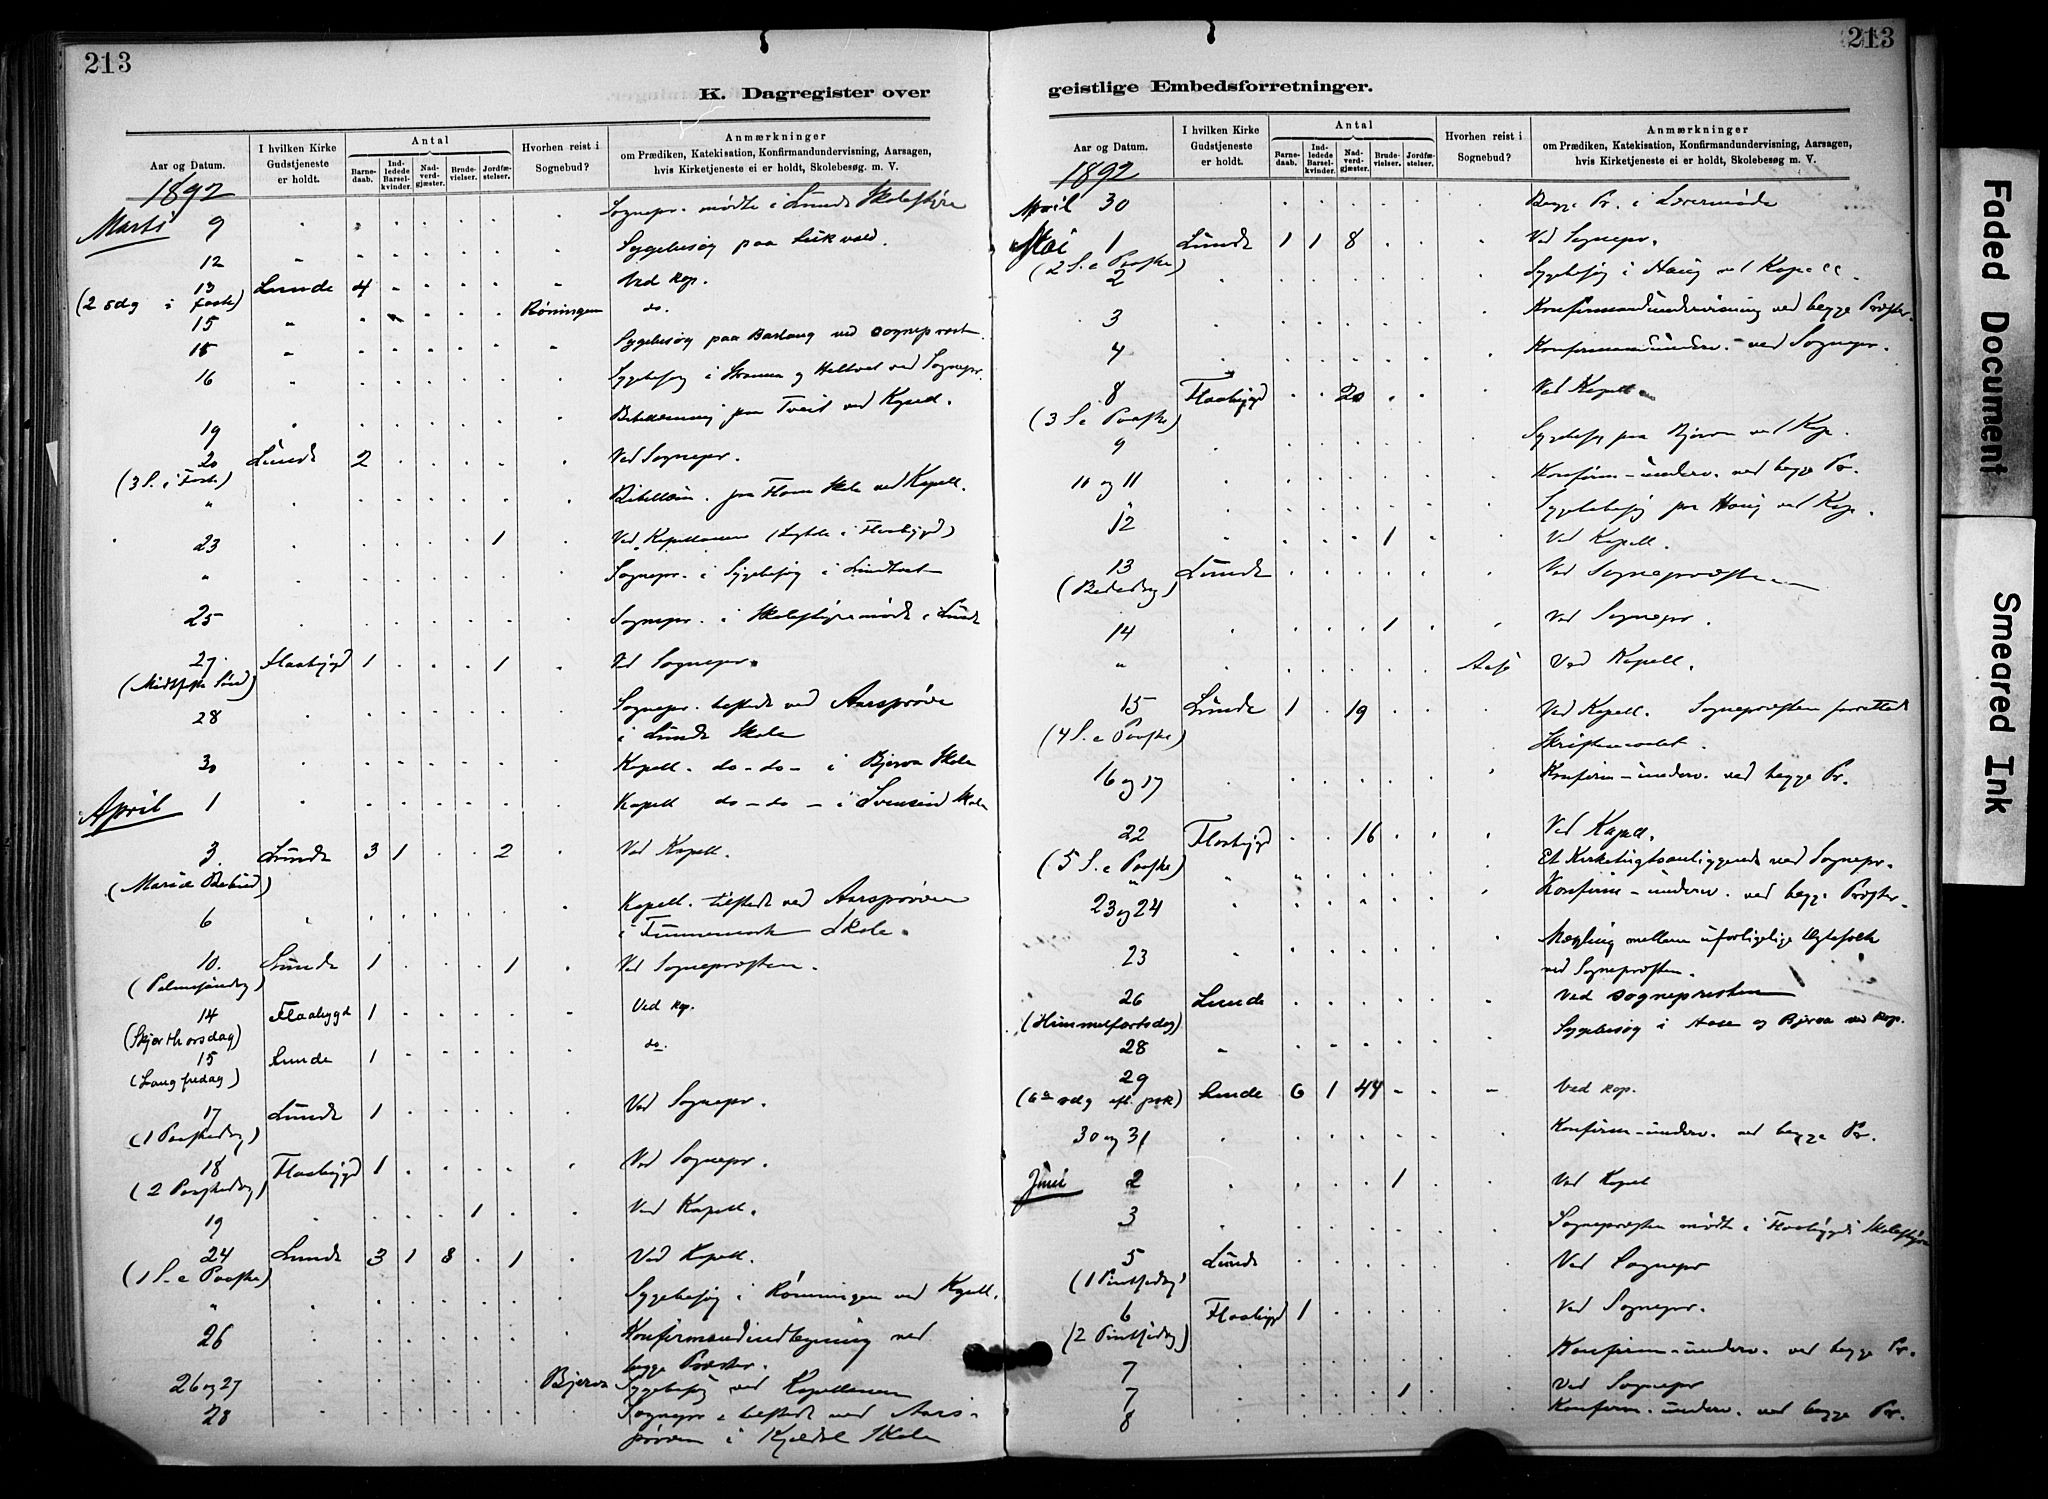 213
K. Dagregister over
Aar og Datum.
I hvilken Kirke Gudstjeneste er holdt.
Antal
Barnedaab.
Indledede Barselkvinder.
Nadverdgjæster.
Brudevielser.
Jordfæstelser.
Hvorhen reist i Sognebud?
Anmærkninger
om Prædiken, Katekisation, Konfirmandundervisning, Aarsagen, hvis Kirketjeneste ei er holdt, Skolebesøg m. V.
1892
Marts 9 Sognepr. mødte i Lunde Skolestyre
12 Sygebesøg paa
13 Lunde 4 Ved kap.
(2 sdg i faste)
15 Røningen do.
15 Sygebesøg paa ved sogneprest
16 Sygebesøg i og ved Sognepr.
19 paa Tveit ved Kapell.
20 Lunde 2 Ved Sognepr.
(3 S. i Faste)
" paa Skole ved Kapell.
23 1 Ved Kapellanen ( i Flaabygd)
" Sognepr. i Sygebesøg i
25 Sognepr. i Skolestyremøde i Lunde
27. Flaabygd 1 1 Ved Sognepr.
(Midfaste Sønd)
28 Sognepr. ved Aarsprøve
i Lunde Skole
30 Kapell. do - do - i Bjerva Skole
April 1 Kapell do - do - i Svenseid Skole
3. Lunde 3 1 2 Ved Kapell.
(Mariæ Bebud)
6 Kapell. tilstede ved Aarsprøven
i Skole.
10. Lunde 1 1 Ved Sognepræsten.
(Palmesøndag)
14 Flaabygd 1 Ved kap.
(Skjærthorsdag)
15 Lunde 1 do.
(Langfredag)
17 Lunde 1 Ved Sognepr.
(1 Paaskedag)
18 Flaabygd 1 Ved Sognepr.
(2 Paaskedag)
19 1 Ved Kapell.
24 Lunde 3 1 8 1 Ved Kapell.
(1 S. e Paaske)
" Sygebesøg i Rønningen ved Kapell.
26 ved
begge Præster.
26 og 27 Bjerva Sygebesøg ved Kapellanen
28 Sognepr. ved Aars-
prøven i Kjeldal Skole
213
geistlige Embedsforretninger.
Aar og Datum.
I hvilken Kirke Gudstjeneste er holdt.
Antal
Barnedaab.
Indledede Barselkvinder.
Nadverdgjæster.
Brudevielser.
Jordfæstelser.
Hvorhen reist i Sognebud?
Anmærkninger
om Prædiken, Katekisation, Konfirmandundervisning, Aarsagen, hvis Kirketjeneste ei er holdt, Skolebesøg m. V.
1892
April 30 Begge Pr. i Lærermøde
Mai 1 Lunde 1 1 8 Ved Sognepr.
(2 S. e Paaske)
2 Sygebesøg i Haug ved Kapell.
3 Konfirmandundervisning ved begge Præster.
4 Konfirmandunderv. ved Sognepr.
8 Flaabygd 20 Ved Kapell
(3 S. e Paaske)
9 Sygebesøg paa Bjerva ved Kap.
10 og 11 Konfirm-underv. ved begge Pr.
12 Sygebesøg paa Haug ved Kap.
" 1 Ved Kapell.
13 Lunde Ved Sognepræsten
(Bededag)
14 1 Ved Sognepr.
" Aase Ved Kapell.
15 Lunde 1 19 Ved Kapell. Sognepræsten forrettede
(4 S. e Paaske) Skriftemaalet.
16 og 17 Konfirm-underv. ved begge Pr.
22 Flaabygd 16 Ved Kapell.
(5 S. e Paaske)
" Et Kirketugtsanliggende ved Sognepr.
23 og 24 Konfirm-underv. ved begge Præster.
23 Mægling mellem uforligelige Ægtefolk
ved Sognepræsten.
26 Lunde Ved sognepresten
(Himmelfartsdag)
28 Sygebesøg i Aase og Bjerva ved kap.
29 Lunde 6 1 44 Ved kap.
(6te sdg eft. pask)
30 og 31 Konfirm-underv. ved begge Pr.
Juni 2 1 Ved Kapell
3 Sognepræsten mødte i Flaabygds Skolestyre
5 Lunde Ved Sognepr
(1 Pintsedag)
6 Flaabygd 1 Ved Sognepr.
(2 Pintsedag)
7 Konfirm-underv. ved begge Pr.
7 1 Ved Sognepr
8 Konfirm-underv. ved begge Pr.
Faded Document
Smeared Ink